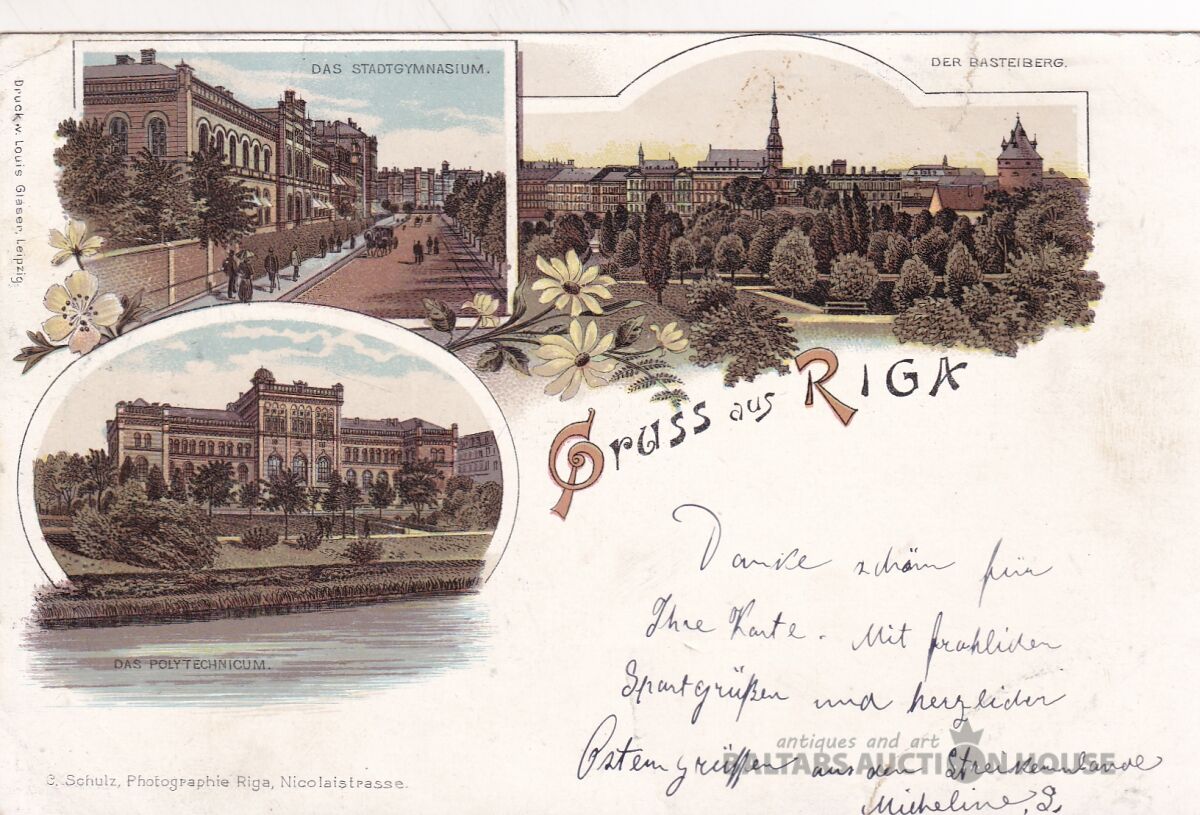 DAS STADTGYMNASIUM.
DER BASTEIBERG.
Druck v. Louis Glaser, Leipzig.
Gruss aus RIGA
DAS POLYTECHNICUM.
Danke schön für
Ihre Karte. Mit
Sportgrüßen und
Ostern grüssen aus dem
Micheline, S.
antiques and art
BALTARS AUCTION HOUSE
C. Schulz, Photographie Riga, Nicolaistrasse.